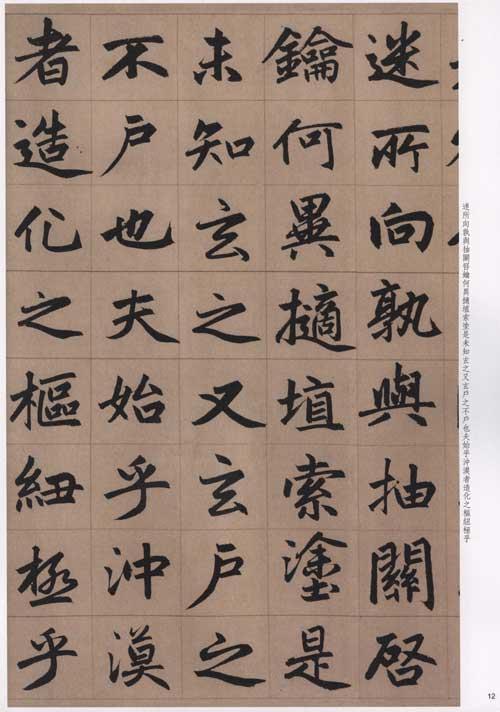 迷所向孰與抽關啓
鑰何異擿埴索塗是
未知玄之又玄戶之
不戶也夫始乎沖漠
者造化之樞紐極乎
迷所向孰與抽關啓鑰何異擿埴索塗是未知玄之又玄戶之不戶也夫始乎沖漠者造化之樞紐極乎
12